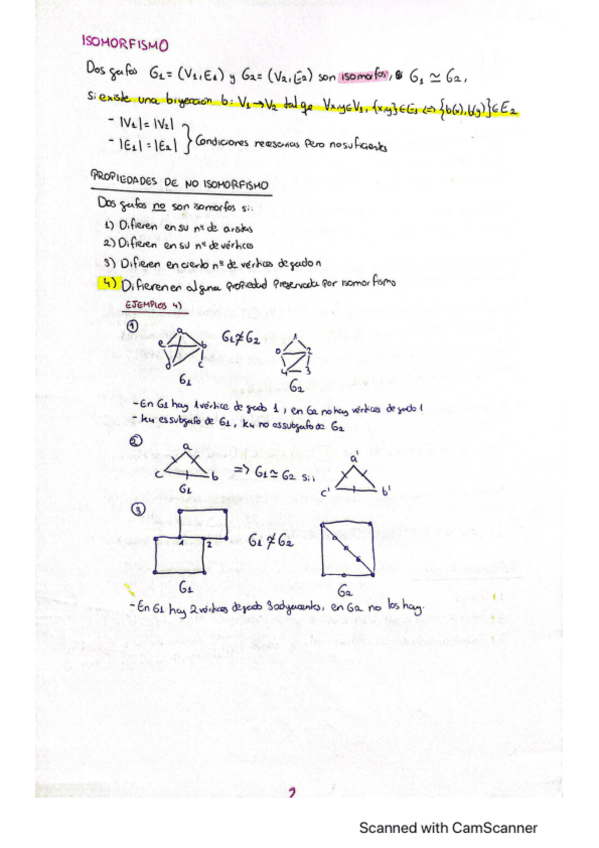 ISOMORFISMO
Dos grafos G1 = (V1, E1) y G2 = (V2, E2) son isomorfos, G1 ≃ G2,
si existe una biyección b: V1 → V2 tal que ∀x,y∈V1, {x,y}∈E1 ⇔ {b(x), b(y)}∈E2
- |V1| = |V2|
- |E1| = |E2| } Condiciones necesarias pero no suficientes
PROPIEDADES DE NO ISOMORFISMO
Dos grafos no son isomorfos si:
1) Difieren en su nº de aristas
2) Difieren en su nº de vértices
3) Difieren en cierto nº de vértices de grado n
4) Difieren en alguna propiedad preservada por isomorfismo
EJEMPLOS 4)
1
a e b d c
G1
G1 ≄ G2
1 0 2 4 3
G2
- En G1 hay 1 vértice de grado 1, en G2 no hay vértices de grado 1
- K4 es subgrafo de G1, K4 no es subgrafo de G2
2
a c b
G1
=> G1 ≃ G2 si
a' c' b'
3
1 2
G1
G1 ≄ G2
G2
- En G1 hay 2 vértices de grado 3 adyacentes, en G2 no los hay.
2
Scanned with CamScanner